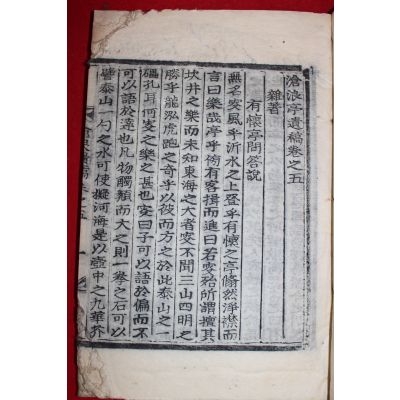 滄浪亭遺稿卷之五
雜著
有懷亭問答說
無名安風乎沂水之上登乎有懷之亭翛然淨襟而
言曰樂哉亭乎傍有客揖而進曰若安殆所謂擅其
坎井之樂而未知東海之大者安不聞三山四明之
勝乎龍泓虎跑之奇乎以彼而方之於此泰山之一
礨孔耳何安之樂之甚也安曰子可以語於偏而不
可以語於達也凡物觸類而大之則一拳之石可以
譬泰山一勺之水可使擬河海是以壺中之九華芥